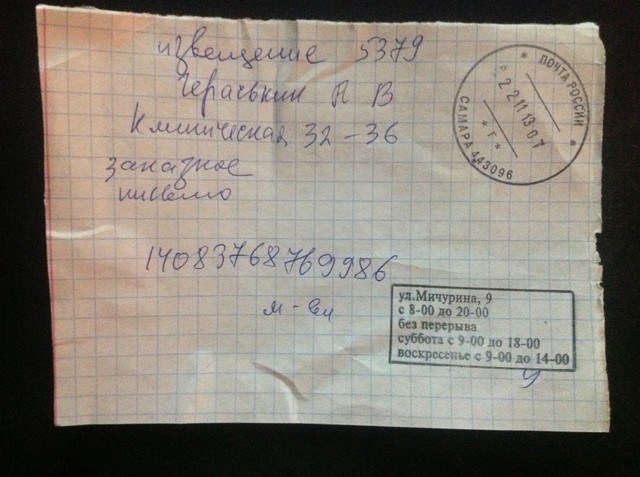 извещение 5379
Гераськин А В
Клиническая 32-36
заказное
письмо
14083768769986
ПОЧТА РОССИИ
22 11 13 07
* Г *
САМАРА 443096
ул.Мичурина, 9
с 8-00 до 20-00
без перерыва
суббота с 9-00 до 18-00
воскресенье с 9-00 до 14-00